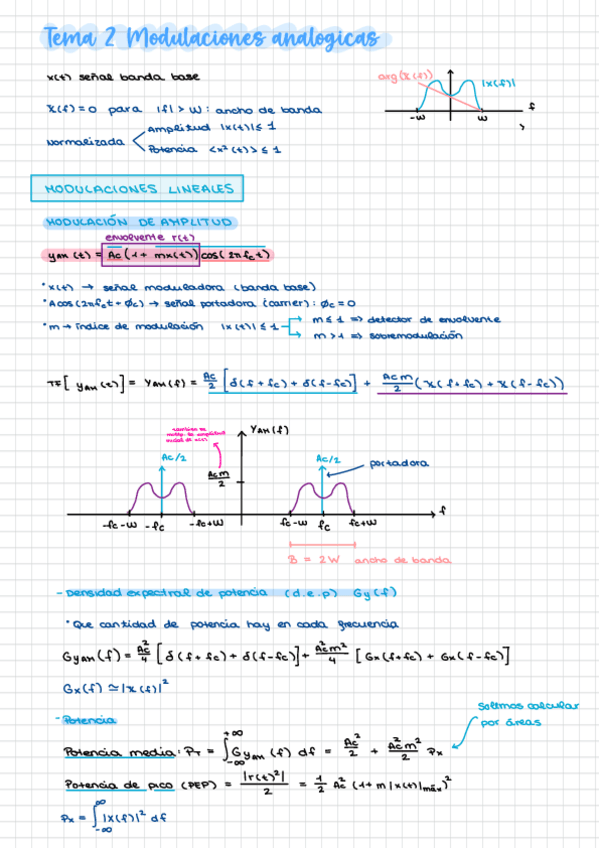 Tema 2 Modulaciones analogicas
x(t) señal banda base
arg(X(f))
|X(f)|
X(f) = 0 para |f| > W : ancho de banda
-W W f
Normalizada
Amplitud |x(t)| ≤ 1
Potencia <x²(t)> ≤ 1
MODULACIONES LINEALES
MODULACIÓN DE AMPLITUD
envolvente r(t)
yAM (t) = Ac (1 + mx(t)) cos( 2πfct)
· x(t) → señal moduladora (banda base)
· Acos(2πfct + φc) → señal portadora (carrier) : φc = 0
· m → índice de modulación |x(t)| ≤ 1
m ≤ 1 => detector de envolvente
m > 1 => sobremodulación
TF[ yAM (t)] = YAM(f) = Ac/2 [δ(f + fc) + δ(f-fc)] + Acm/2 (X(f+fc) + X(f-fc))
YAM(f)
Ac/2
Acm/2
Ac/2
portadora
-fc-W -fc -fc+W fc-W fc fc+W f
B = 2W ancho de banda
- Densidad expectral de potencia (d.e.p) Gy(f)
· Que cantidad de potencia hay en cada frecuencia
GyAM(f) = Ac²/4 [δ(f + fc) + δ(f-fc)] + Ac²m²/4 [Gx(f+fc) + Gx(f-fc)]
Gx(f) ≃ |X(f)|²
Solemos calcular
por áreas
- Potencia
Potencia media : PT = ∫-∞+∞ GyAM (f) df = Ac²/2 + Ac²m²/2 Px
Potencia de pico (PEP) = |r(t)²|/2 = 1/2 Ac² (1+ m |x(t)|máx)²
Px = ∫-∞∞ |X(f)|² df